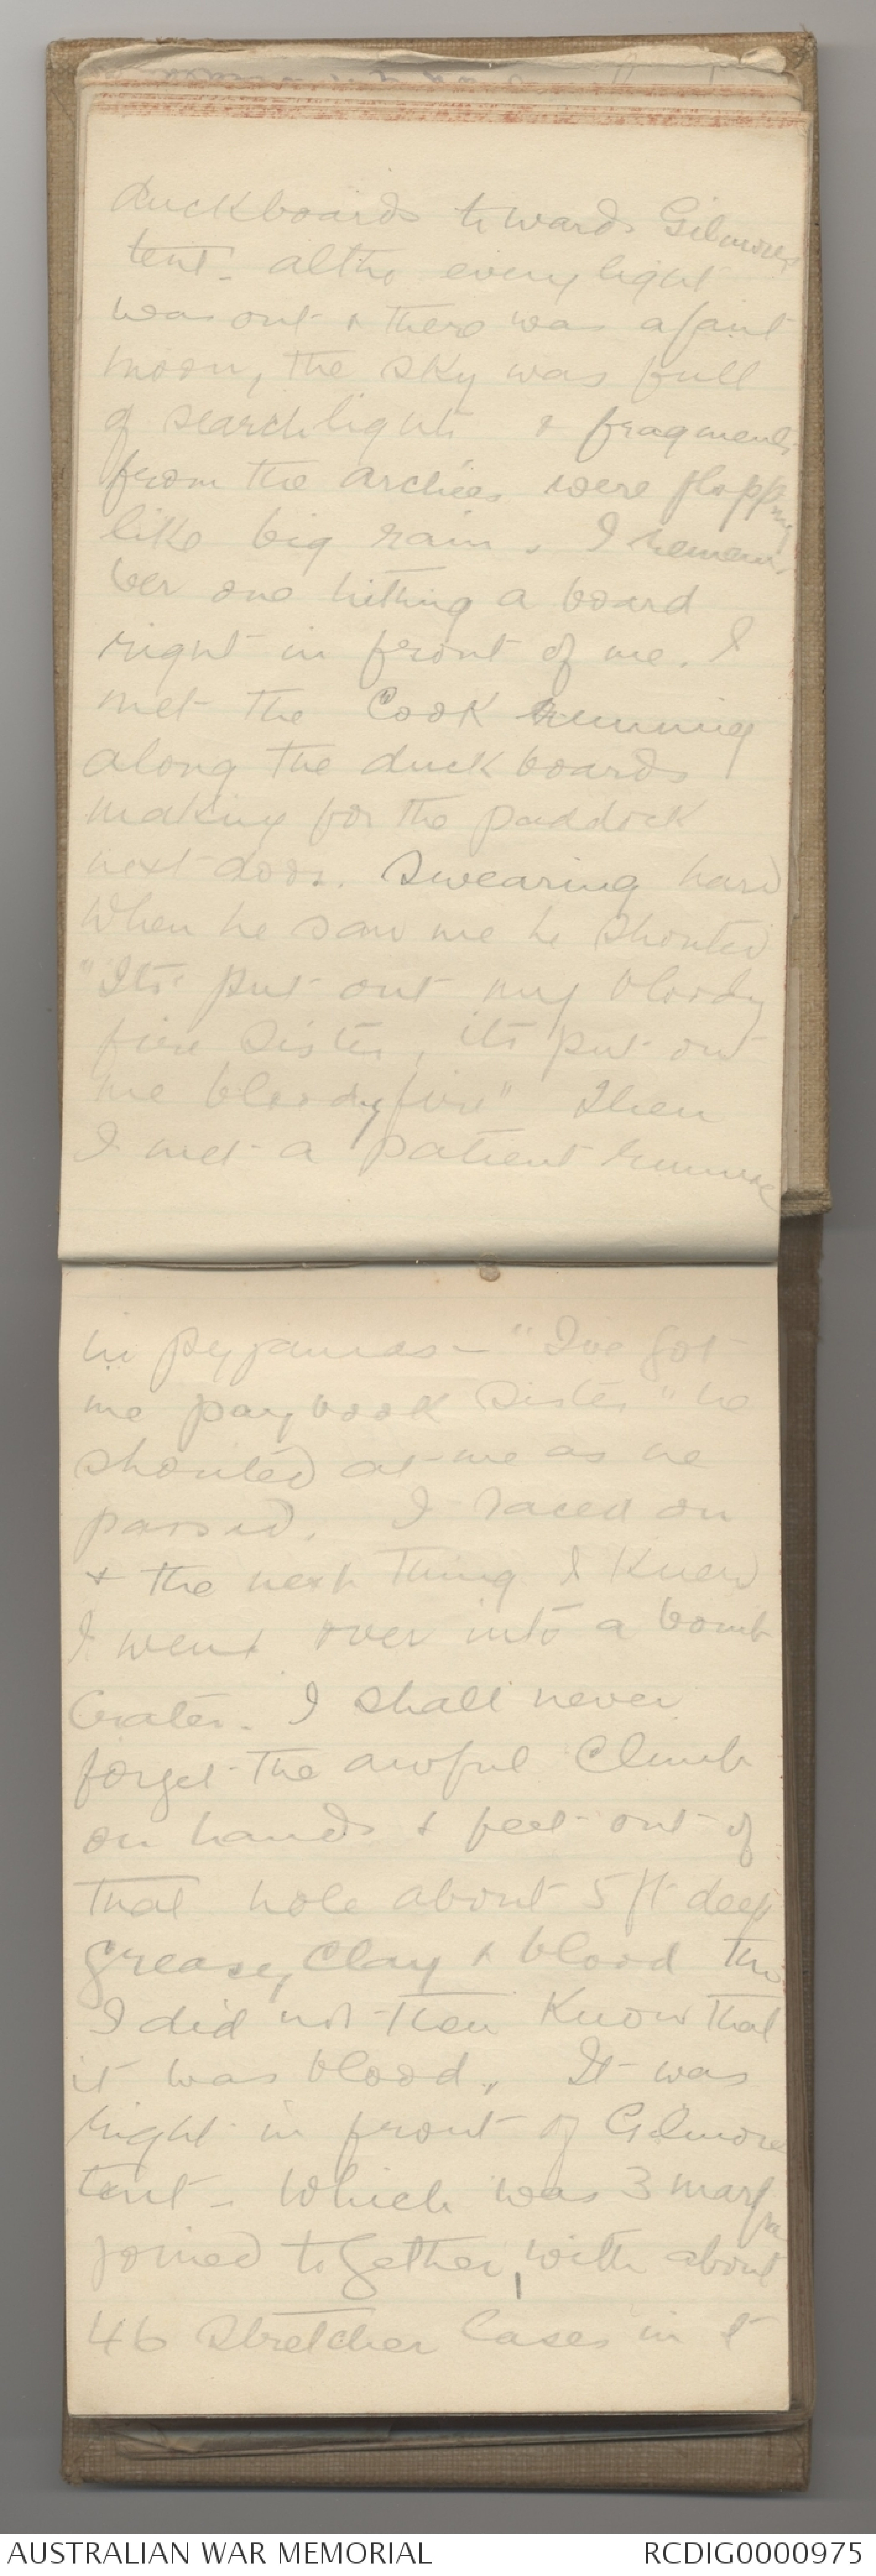 duckboards towards Gilmores
tent - altho every light
was out & there was a faint
moon, the sky was full
of searchlights & fragments
from the archies were flopping
like big rain. I remem
ber one hitting a board
right in front of me. I
met the Cook running
along the duckboards
making for the paddock
next door. Swearing hard
When he saw me he shouted
"Its put out my bloody
fire Sister, its put out
me bloody fire" Then
I met a patient running
in pyjamas - "Ive got
me paybook Sister" he
shouted at me as he
passed. I raced on
& the next thing I knew
I went over into a bomb
Crater. I shall never
forget the awful Climb
on hands & feet out of
that hole about 5 ft deep
greasy Clay & blood tho
I did not then Know that
it was blood. It was
right in front of Gilmores
tent - Which was 3 marquees
joined together, with about
46 Stretcher Cases in it
AUSTRALIAN WAR MEMORIAL
RCDIG0000975